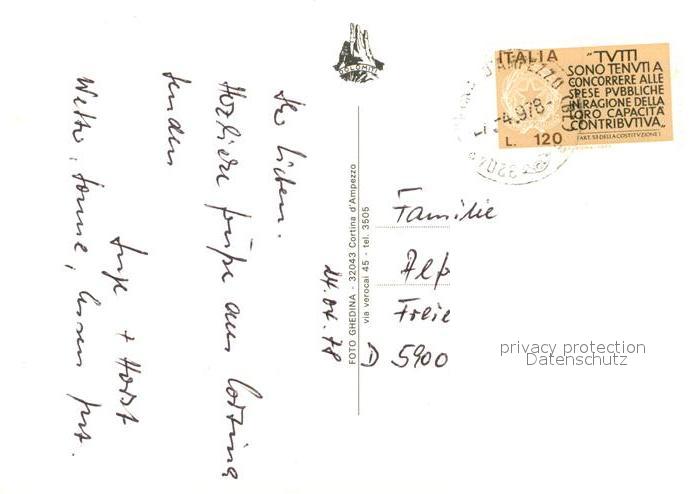 Ihr Lieben.
Herzliche Grüße aus Cortina
senden
Inge + Horst
Wetter: Sonne, Essen gut.
24.04.78
DOLOMITI
FOTO GHEDINA - 32043 Cortina d'Ampezzo
via verocai 45 - tel. 3505
ITALIA
L. 120
"TVTTI
SONO TENVTI A
CONCORRERE ALLE
SPESE PVBBLICHE
IN RAGIONE DELLA
LORO CAPACITÀ
CONTRIBVTIVA"
(ART. 53 DELLA COSTITVZIONE)
D'AMPEZZO
4.978
Familie
Alf
Freie
D 5900
privacy protection
Datenschutz